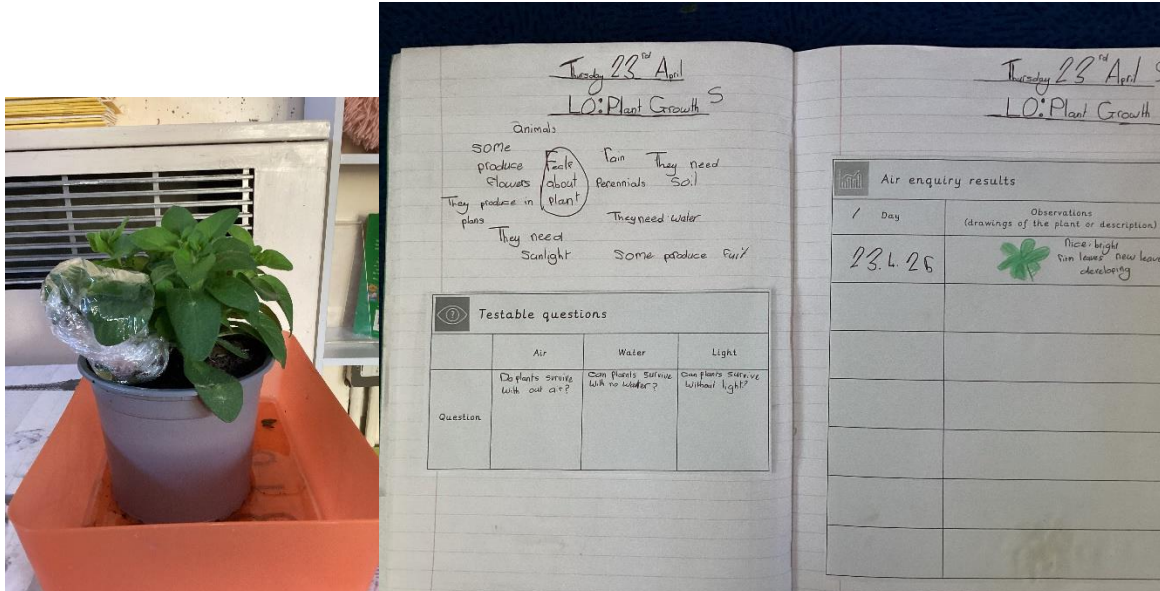 Thursday 23rd April
LO: Plant Growth S
animals
some
produce
flowers
Facts
about
plant
rain
Perennials
They need
soil
They produce in
plans
They need water
They need
sunlight
Some produce fuit
Testable questions
Air Water Light
Question
Do plants survive
with out air?
Can plants survive
with no water?
Can plants survive
without light?
Thursday 23rd April
LO: Plant Growth
Air enquiry results
Day
Observations
(drawings of the plant or description)
23.4.26
Nice bright
leaves new leave
developing